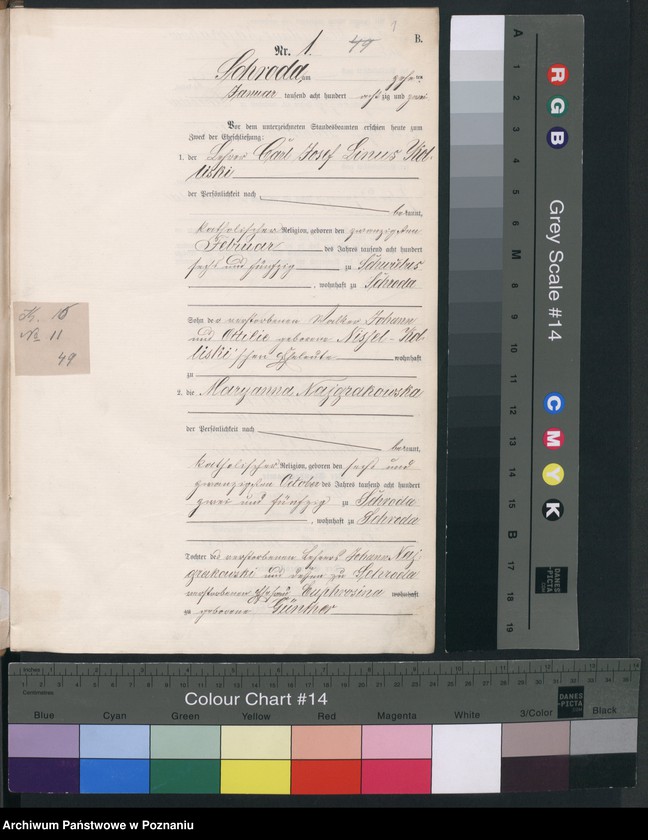 1
Nr. 1. 49 B.
Schroda, am zehnten
Januar tausend acht hundert achtzig und zwei
Vor dem unterzeichneten Standesbeamten erschien heute zum
Zweck der Eheschließung:
1. der Lehrer Carl Josef Linus Kol-
liski
der Persönlichkeit nach
bekannt,
katholischer Religion, geboren den zwanzigsten
Februar des Jahres tausend acht hundert
sechs und fünfzig zu Schwiebus
, wohnhaft zu Schroda
Sohn der verstorbenen Johann
und Ottilie geborene Kol-
liski'schen Eheleute wohnhaft
zu
2. die Maryanna Najgrakowska
der Persönlichkeit nach
bekannt,
katholischer Religion, geboren den sechs und
zwanzigsten October des Jahres tausend acht hundert
zwei und fünfzig zu Schroda
, wohnhaft zu Schroda
Tochter des verstorbenen Lehrers Johann Naj-
grakowski und dessen zu Schroda
verstorbenen Ehefrau Euphrosina wohnhaft
zu geborene Günther
K. 15
No 11
49
Grey Scale #14
A 1 2 3 4 5 6 M 8 9 10 11 12 13 14 15 B 17 18 19
R G B
C M Y K
DANES
PICTA
.COM
Inches 1 2 3 4 5 6 7 8 9 10 11 12 13 14
Centimetres
Colour Chart #14
DANES
-PICTA
.COM
Blue Cyan Green Yellow Red Magenta White 3/Color Black
Archiwum Państwowe w Poznaniu